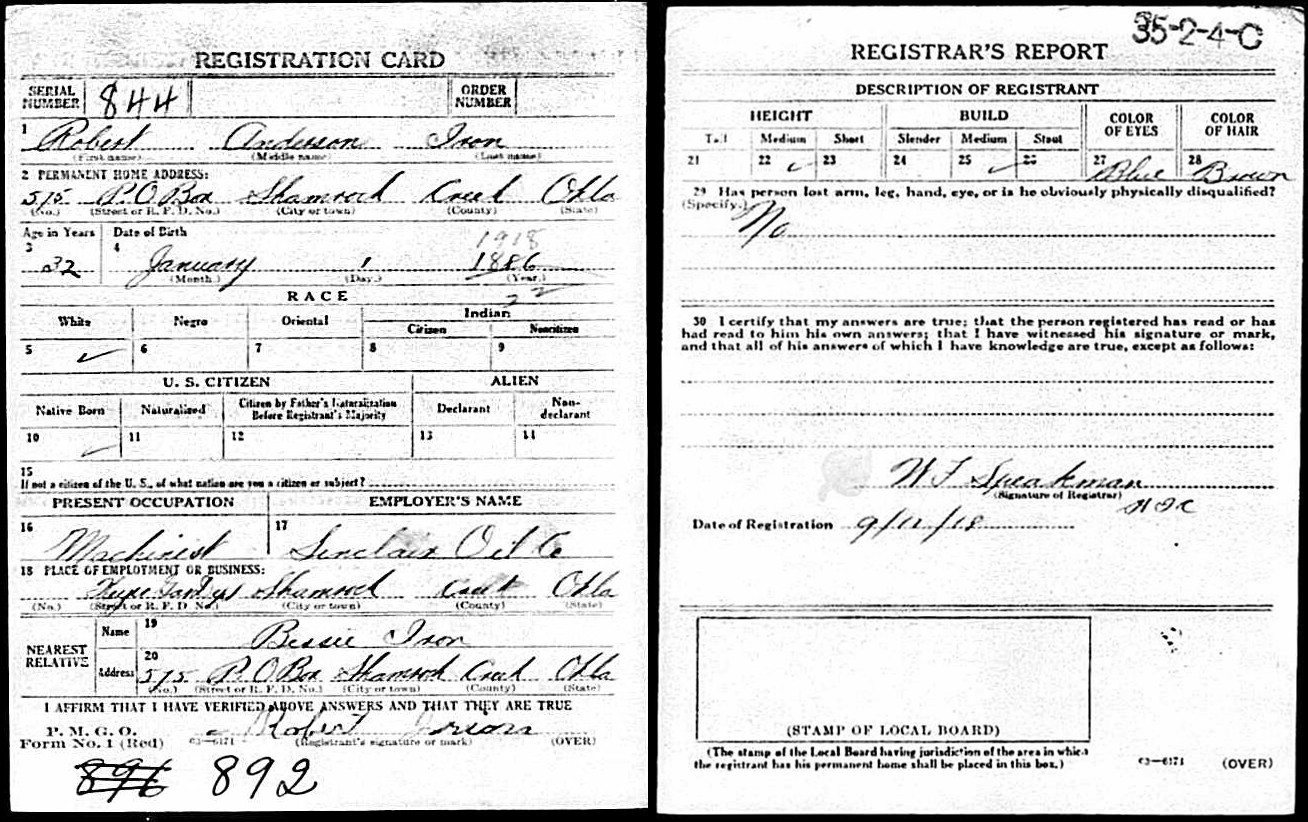 REGISTRATION CARD
SERIAL NUMBER 844 ORDER NUMBER
1 Robert Anderson Iron
(First name) (Middle name) (Last name)
2 PERMANENT HOME ADDRESS:
575 P.O Box Shamrock Creek Okla
(No.) (Street or R. F. D. No.) (City or town) (County) (State)
Age in Years Date of Birth 1918
3 4
32 January 1 1886
(Month.) (Day.) (Year.)
RACE
White Negro Oriental Indian
Citizen Noncitizen
5 ✓ 6 7 8 9
U. S. CITIZEN ALIEN
Native Born Naturalized Citizen by Father's Naturalization Before Registrant's Majority Declarant Non-declarant
10 ✓ 11 12 13 14
15
If not a citizen of the U. S., of what nation are you a citizen or subject?
PRESENT OCCUPATION EMPLOYER'S NAME
16 Machinist 17 Sinclair Oil Co
18 PLACE OF EMPLOYMENT OR BUSINESS:
Shamrock Creek Okla
(No.) (Street or R. F. D. No.) (City or town) (County) (State)
NEAREST RELATIVE
Name 19 Bessie Iron
Address 20 575 P.O Box Shamrock Creek Okla
(No.) (Street or R. F. D. No.) (City or town) (County) (State)
I AFFIRM THAT I HAVE VERIFIED ABOVE ANSWERS AND THAT THEY ARE TRUE
P. M. G. O.
Form No. 1 (Red) 03—6171 Robert Irion (Registrant's signature or mark) (OVER)
896 892
35-2-4-C
REGISTRAR'S REPORT
DESCRIPTION OF REGISTRANT
HEIGHT BUILD COLOR OF EYES COLOR OF HAIR
Tall Medium Short Slender Medium Stout
21 22 ✓ 23 24 25 ✓ 26 27 Blue 28 Brown
29 Has person lost arm, leg, hand, eye, or is he obviously physically disqualified?
(Specify.) No
30 I certify that my answers are true; that the person registered has read or has
had read to him his own answers; that I have witnessed his signature or mark,
and that all of his answers of which I have knowledge are true, except as follows:
W F Speakman
(Signature of Registrar)
Date of Registration 9/12/18
(STAMP OF LOCAL BOARD)
(The stamp of the Local Board having jurisdiction of the area in which
the registrant has his permanent home shall be placed in this box.)
03—6171 (OVER)